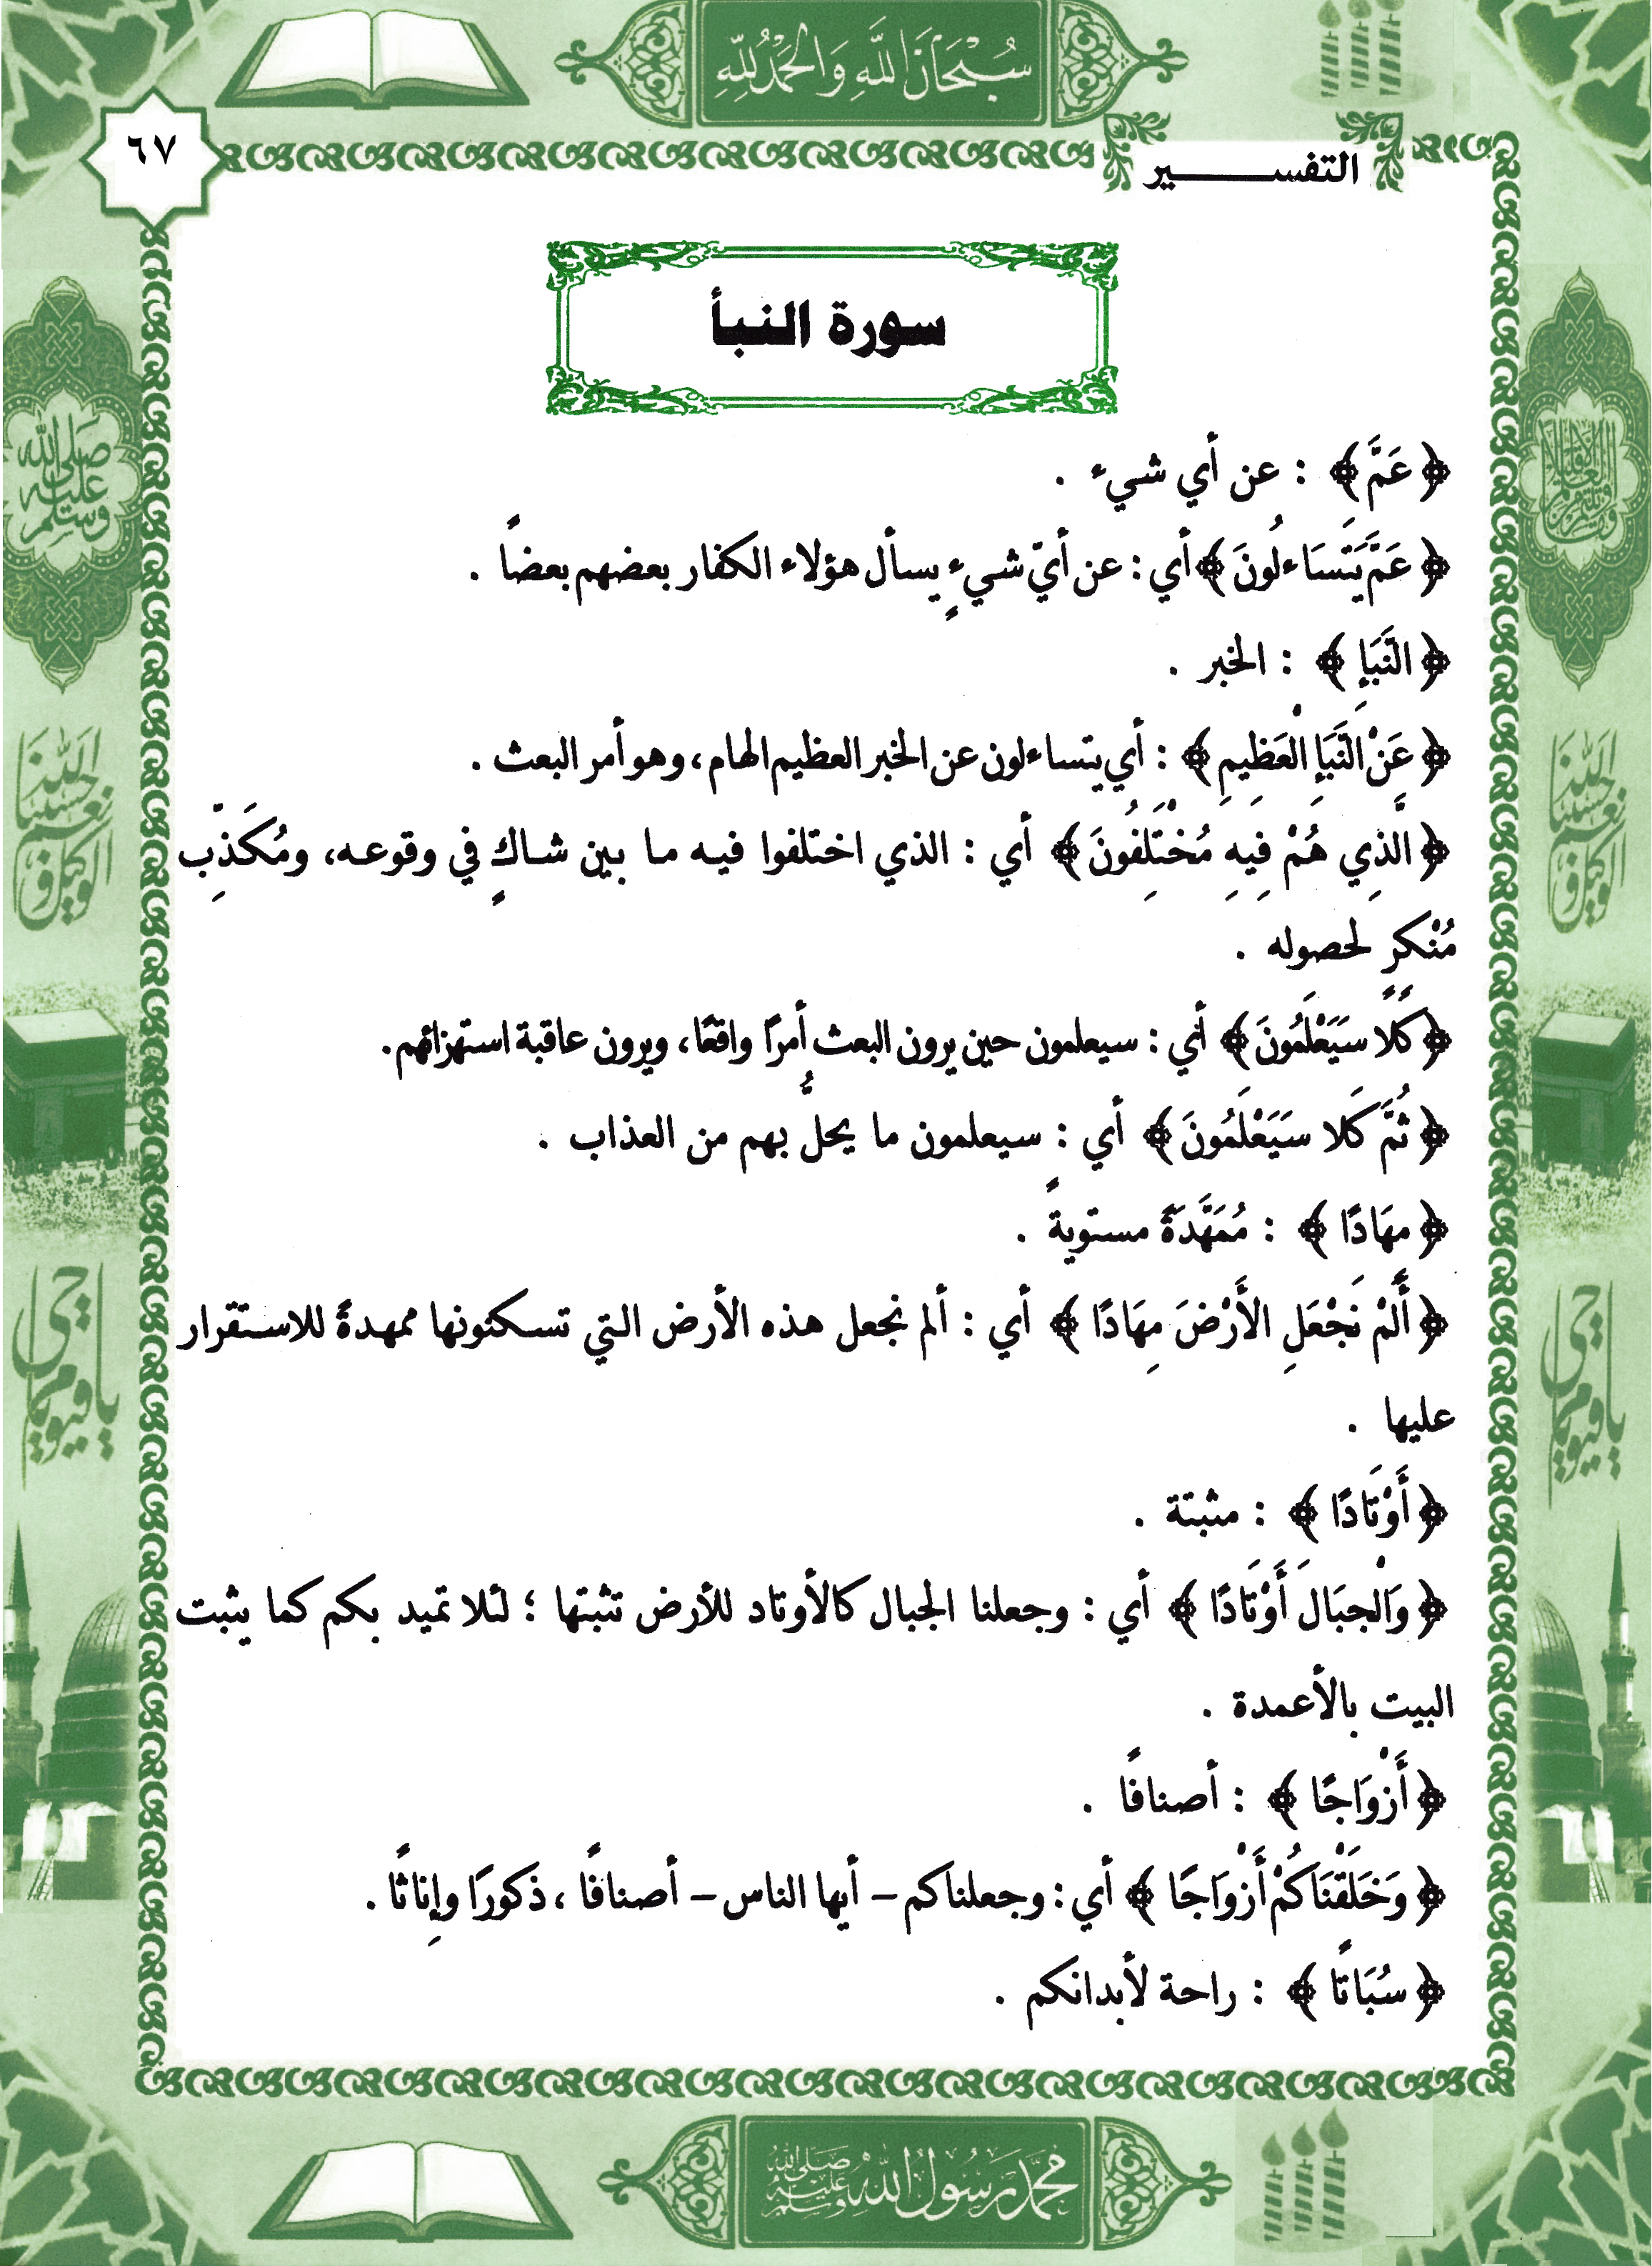 سُبْحَانَ اللَّهِ وَالْحَمْدُ لِلَّهِ
٦٧
التفسير
سورة النبأ
﴿عَمَّ﴾ : عن أي شيء .
﴿عَمَّ يَتَسَاءلُونَ﴾ أي : عن أيّ شيءٍ يسأل هؤلاء الكفار بعضهم بعضًا .
﴿النَّبَإِ﴾ : الخبر .
﴿عَنْ النَّبَإِ الْعَظِيمِ﴾ : أي يتساءلون عن الخبر العظيم الهام ، وهو أمر البعث .
﴿الَّذِي هُمْ فِيهِ مُخْتَلِفُونَ﴾ أي : الذي اختلفوا فيه ما بين شاكٍ في وقوعه، ومُكَذِّب
مُنْكرٍ لحصوله .
﴿كَلَّا سَيَعْلَمُونَ﴾ أي : سيعلمون حين يرون البعث أمرًا واقعًا ، ويرون عاقبة استهزائهم.
﴿ثُمَّ كَلا سَيَعْلَمُونَ﴾ أي : سيعلمون ما يحلُّ بهم من العذاب .
﴿مهَادًا﴾ : مُمَهَّدَةً مستويةً .
﴿أَلَمْ نَجْعَلِ الأَرْضَ مِهَادًا﴾ أي : ألم نجعل هذه الأرض التي تسكنونها ممهدةً للاستقرار
عليها .
﴿أَوْتَادًا﴾ : مثبتة .
﴿وَالْجبَالَ أَوْتَادًا﴾ أي : وجعلنا الجبال كالأوتاد للأرض تثبتها ؛ لئلا تميد بكم كما يثبت
البيت بالأعمدة .
﴿أَزْوَاجًا﴾ : أصنافًا .
﴿وَخَلَقْنَاكُمْ أَزْوَاجًا﴾ أي : وجعلناكم – أيها الناس – أصنافًا ، ذكورًا وإناثًا .
﴿سُبَاتًا﴾ : راحة لأبدانكم .
صَلَّى اللَّه عَلَيْهِ وَسَلَّم
حَسْبُنَا اللَّه وَنِعْمَ الْوَكِيل
يا حي يا قيوم
حَسْبُنَا اللَّه وَنِعْمَ الْوَكِيل
يا حي يا قيوم
مُحَمَّد رَسُولُ اللَّه صَلَّى اللَّه عَلَيْهِ وَسَلَّم